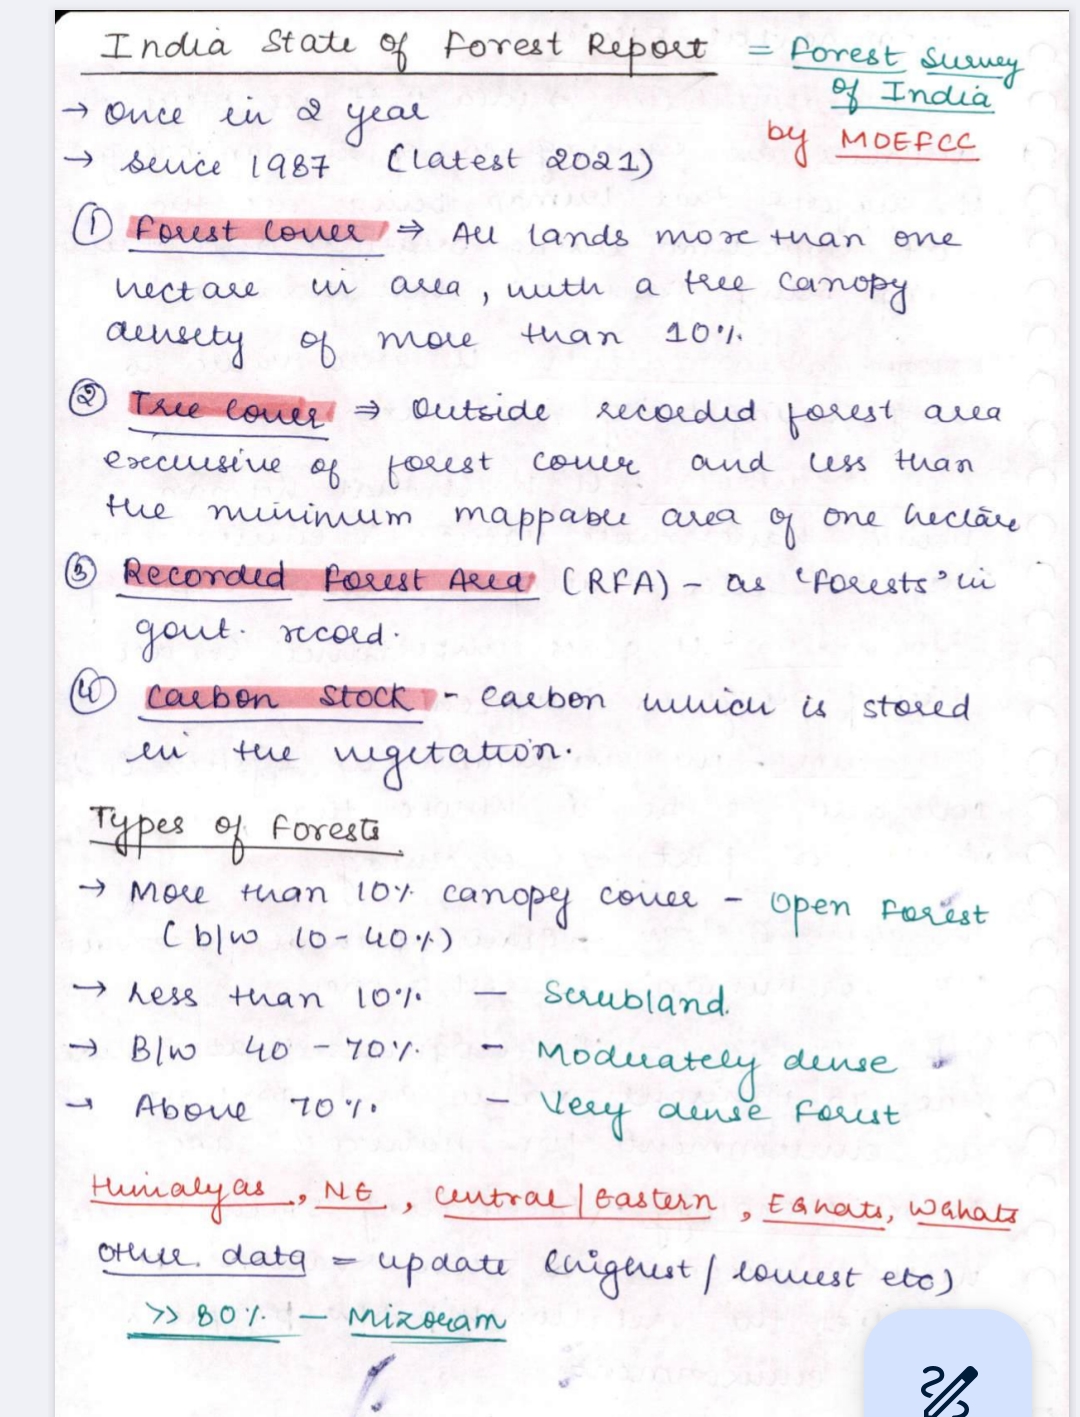 India State of Forest Report = Forest Survey
of India
by MOEFCC
→ Once in 2 year
→ since 1987 (latest 2021)
① Forest Cover ⇒ All lands more than one
hectare in area, with a tree canopy
density of more than 10%.
② Tree Cover ⇒ Outside recorded forest area
exclusive of forest cover and less than
the minimum mappable area of one hectare
③ Recorded Forest Area (RFA) - as 'Forests' in
govt. record.
④ Carbon Stock - Carbon which is stored
in the vegetation.
Types of Forests
→ More than 10% canopy cover - Open Forest
(b/w 10-40%)
→ Less than 10% - Scrubland.
→ B/w 40-70%. - Moderately dense
→ Above 70%. - Very dense Forest
Himalyas, NE, Central/Eastern, EGhats, WGhats
Other data = update (highest/lowest etc)
>> 80% - Mizoram